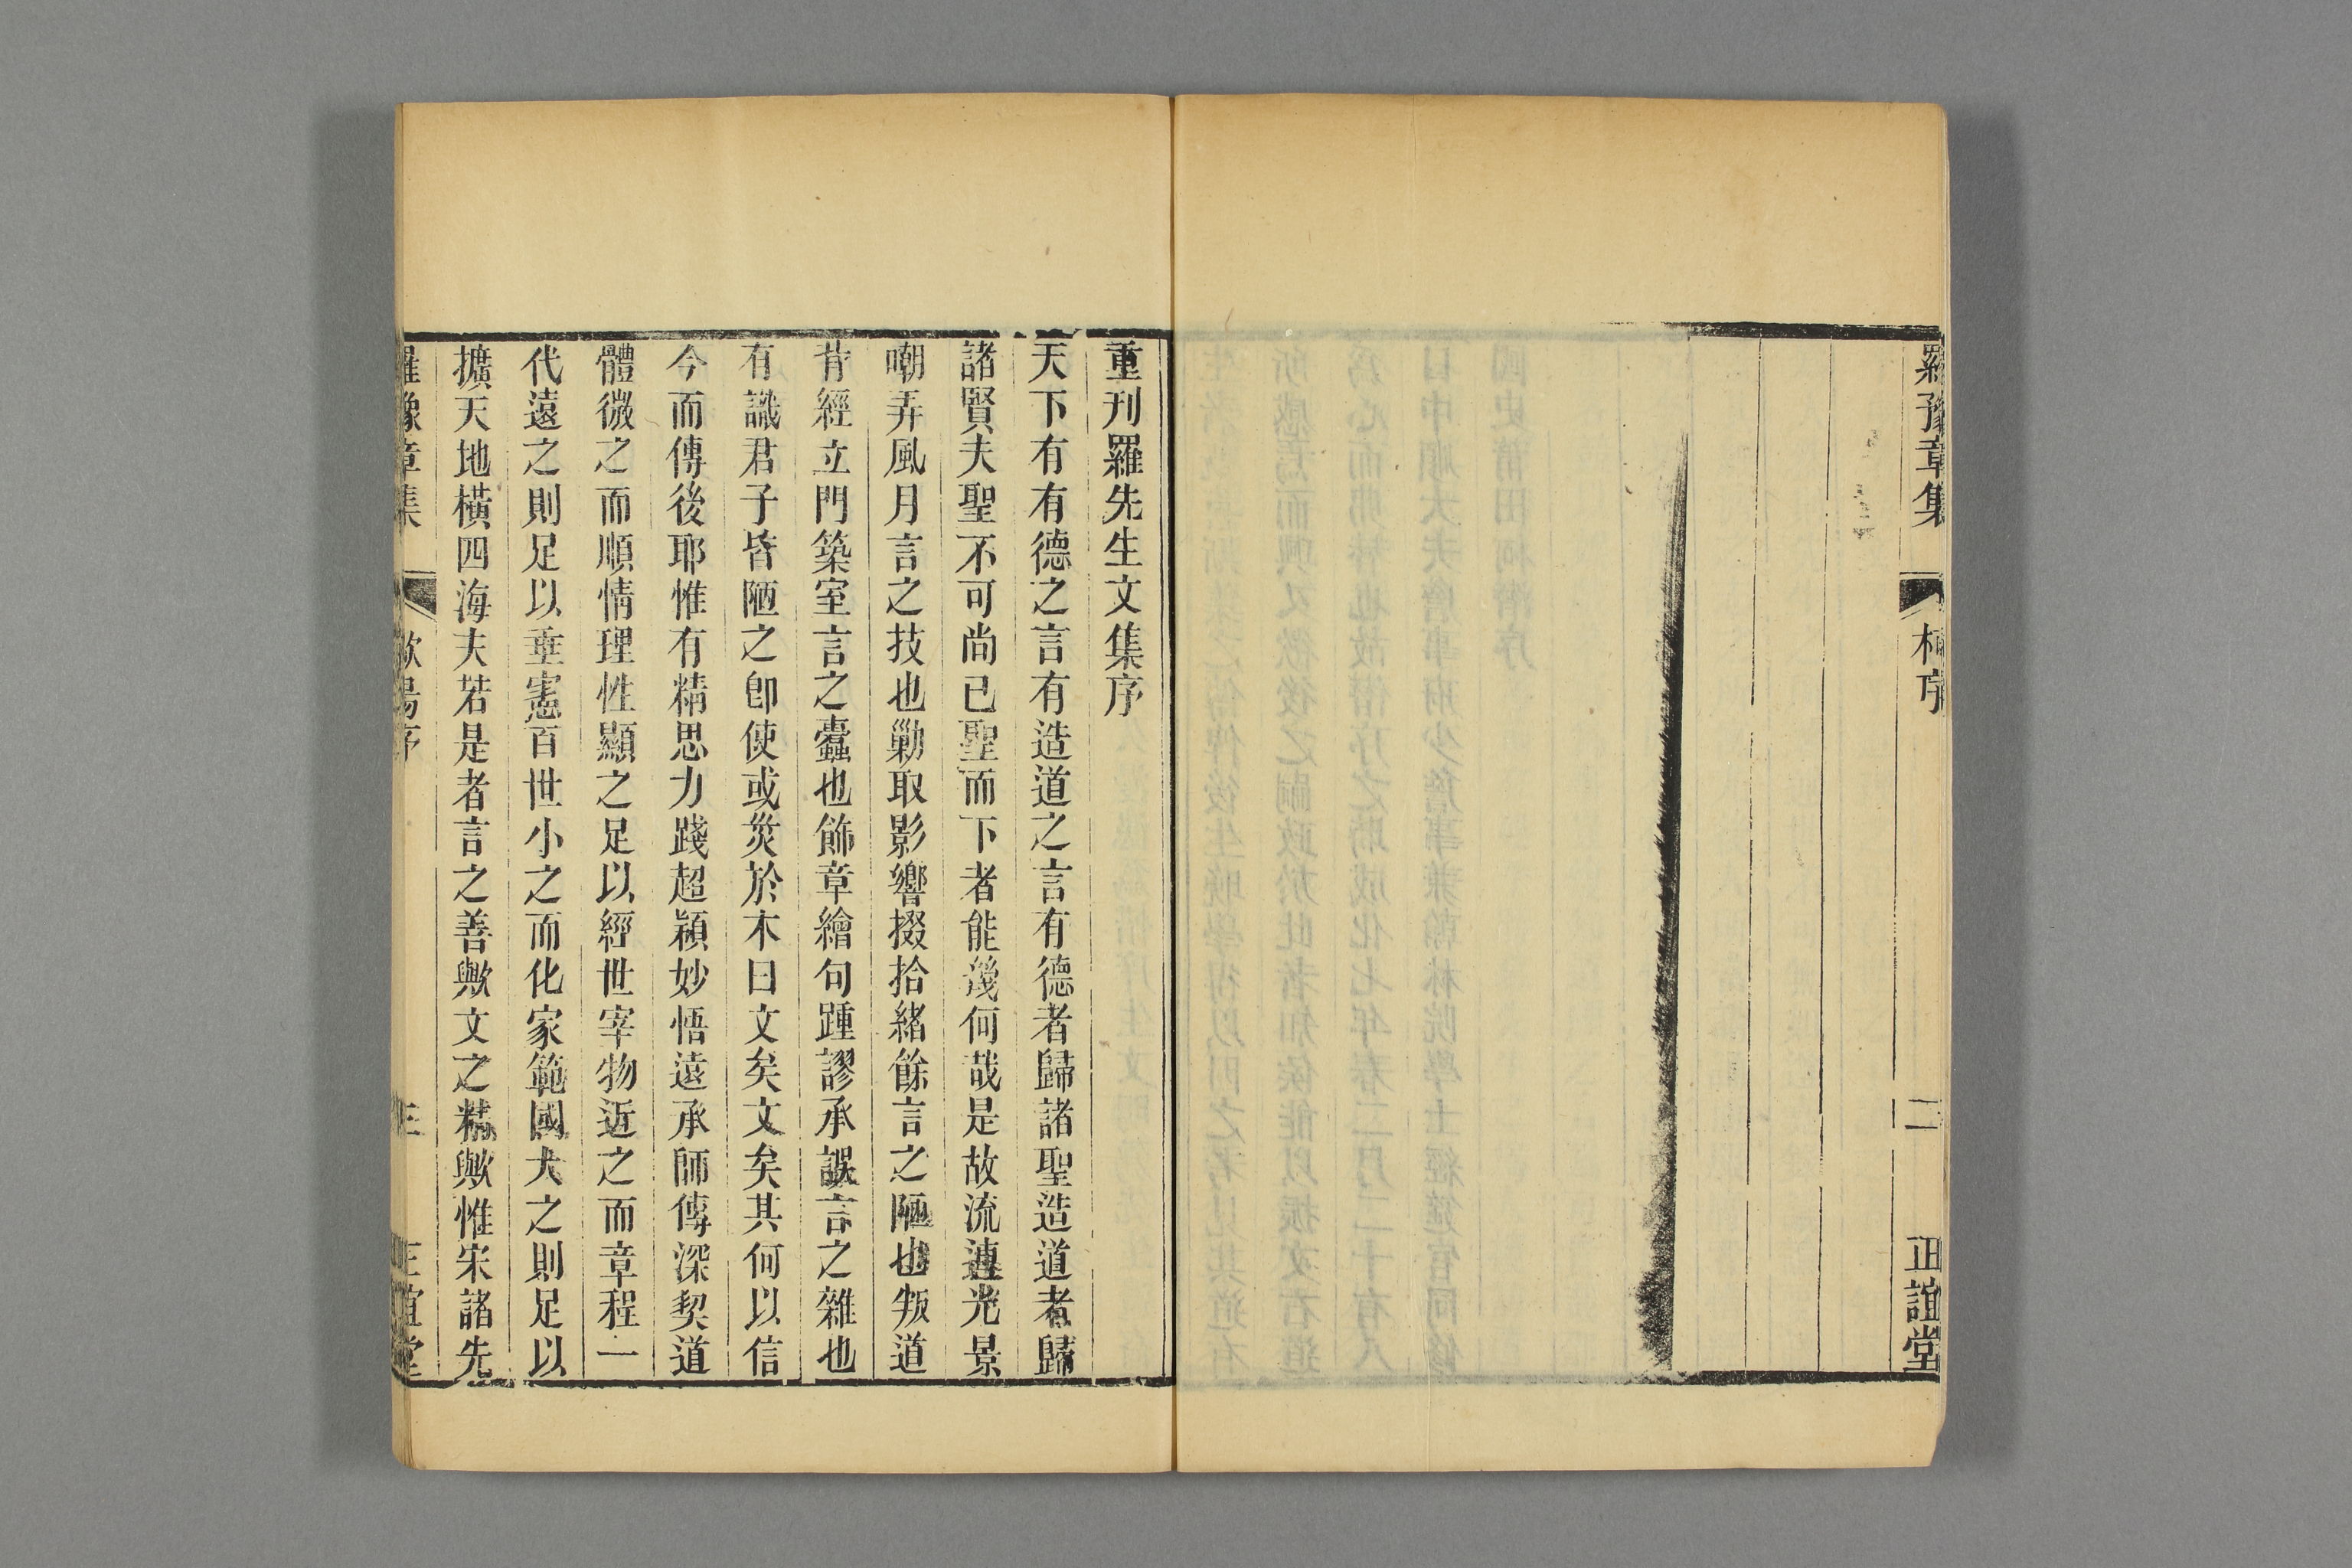 羅豫章集
柯序
二
正誼堂
重刊羅先生文集序
天下有有德之言有造道之言有德者歸諸聖造道者歸
諸賢夫聖不可尚已聖而下者能幾何哉是故流連光景
嘲弄風月言之技也勦取影響掇拾緒餘言之陋也叛道
背經立門築室言之蠹也飾章繪句踵謬承誤言之雜也
有識君子皆陋之卽使或災於木曰文矣文矣其何以信
今而傳後耶惟有精思力踐超穎妙悟遠承師傳深契道
體微之而順情理性顯之足以經世宰物近之而章程一
代遠之則足以垂憲百世小之而化家範國大之則足以
擴天地橫四海夫若是者言之善歟文之精歟惟宋諸先
羅豫章集
歐陽序
三
正誼堂